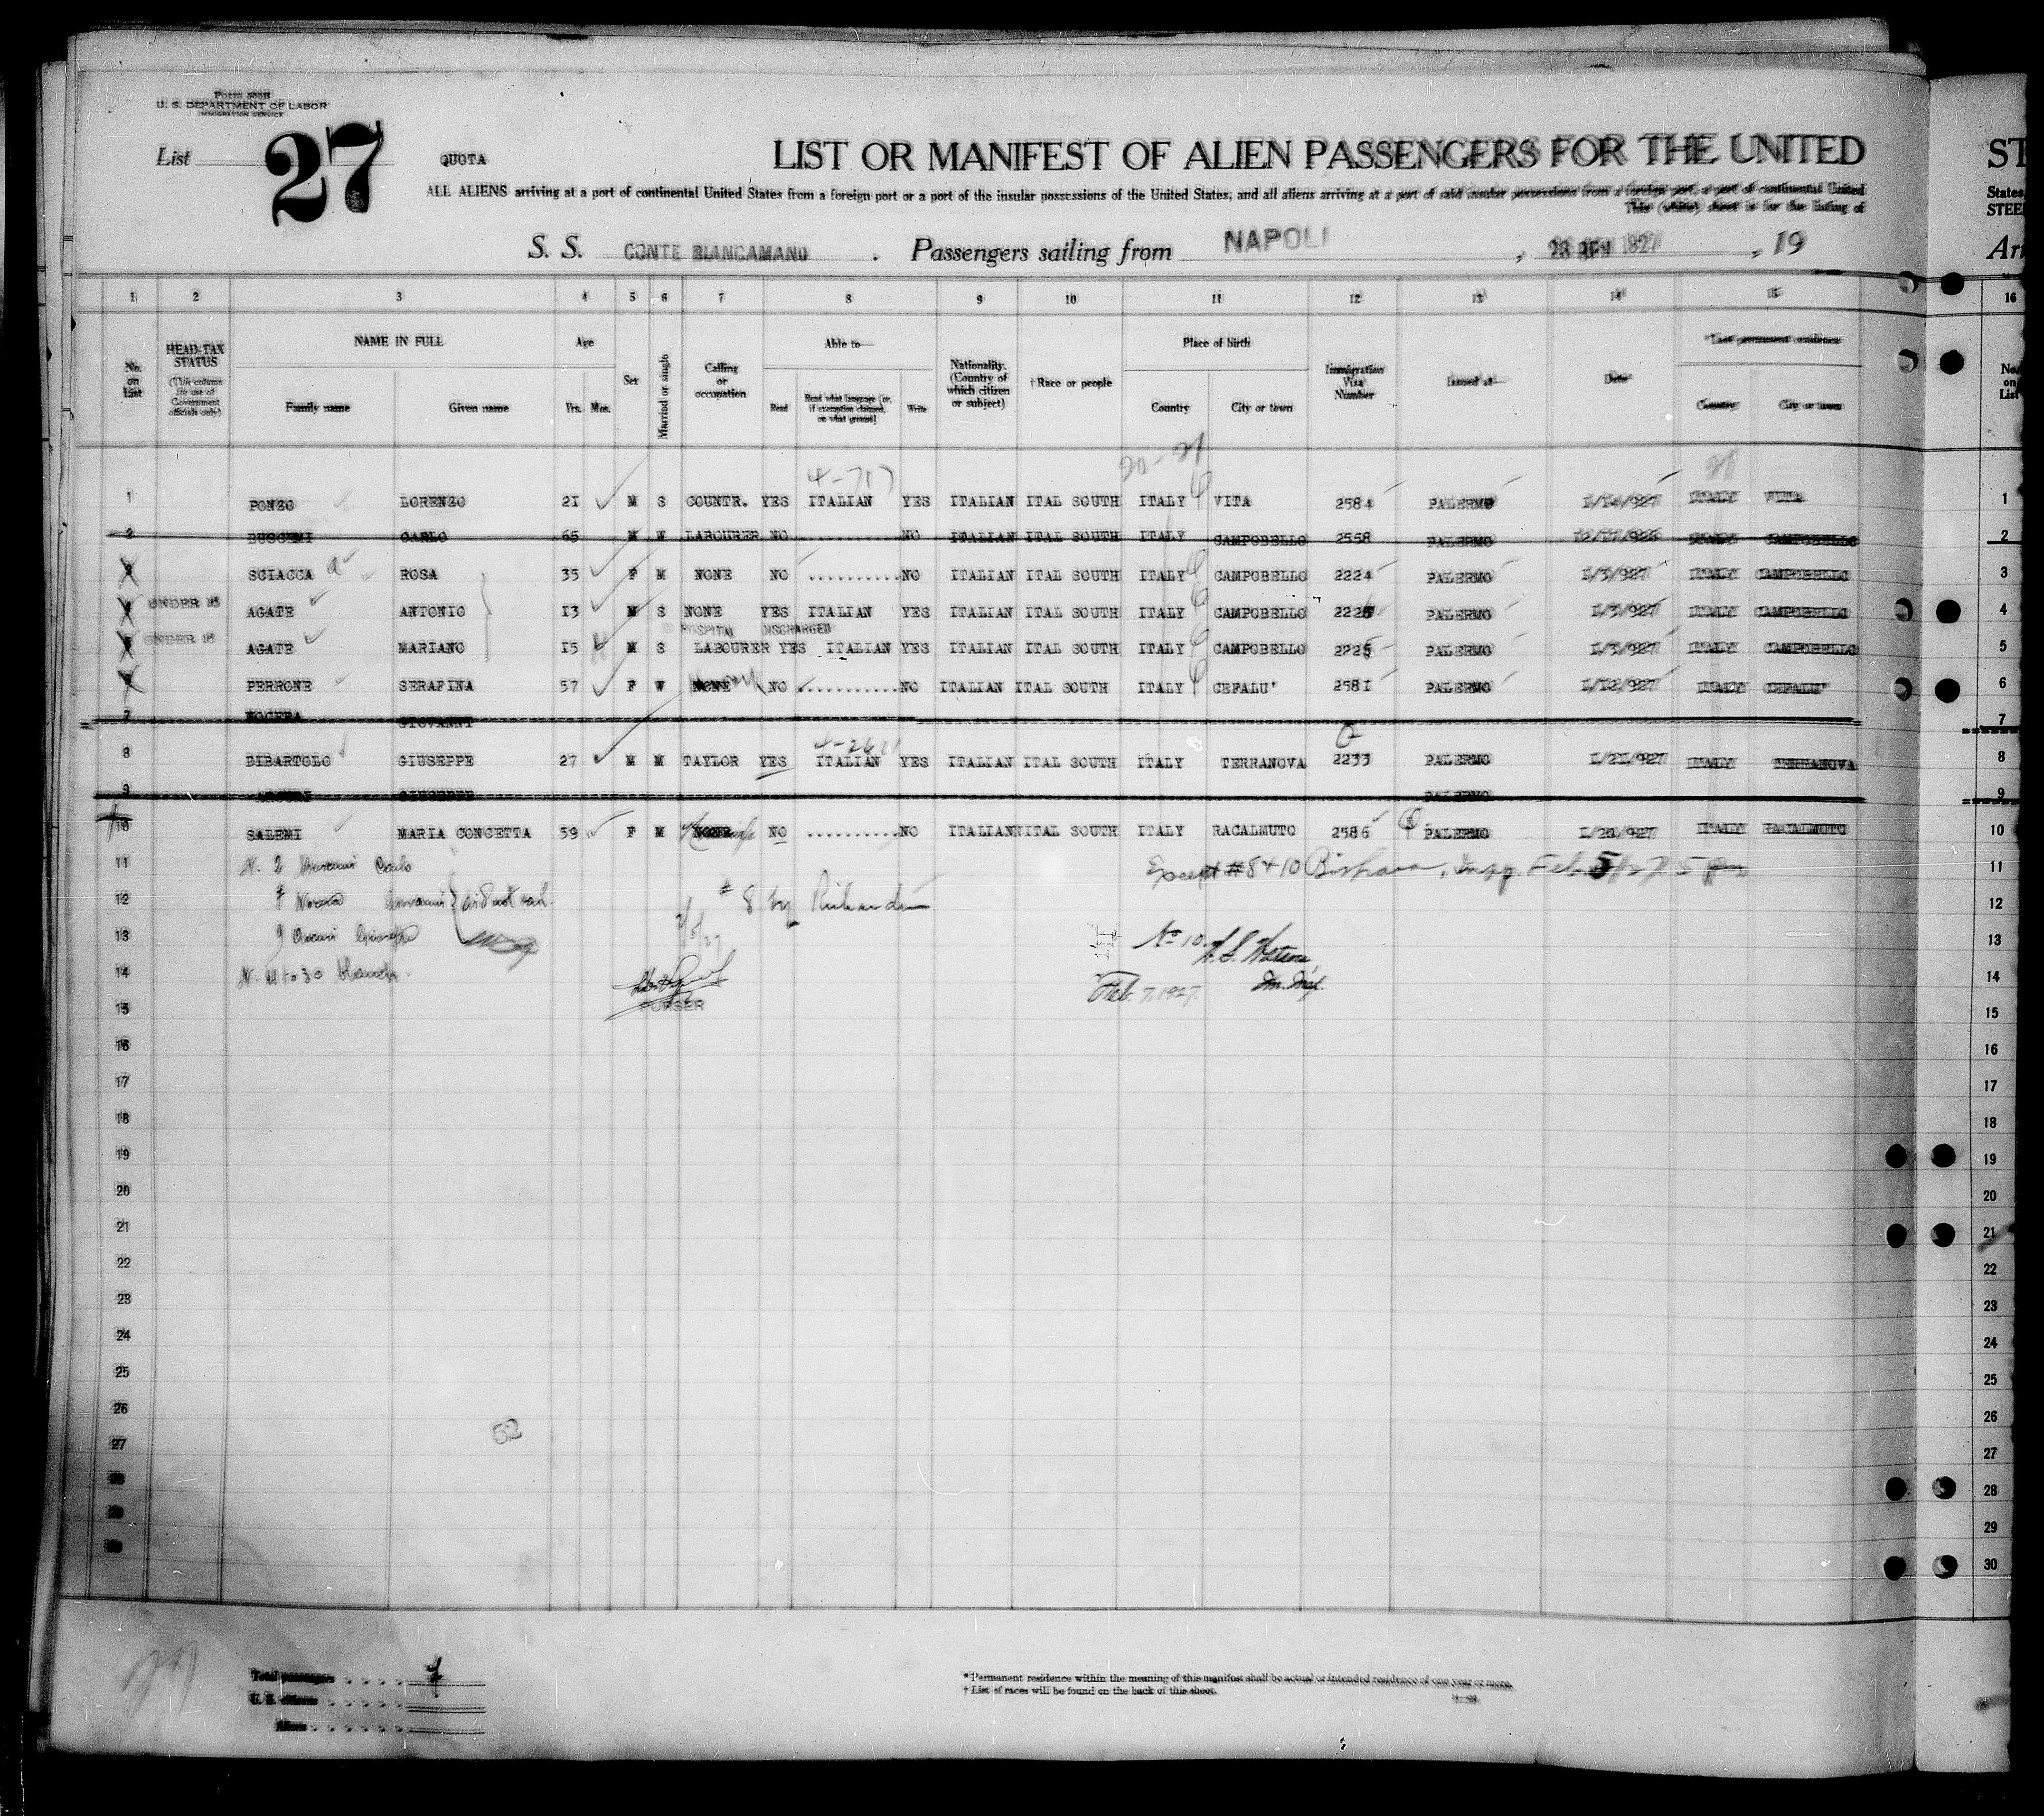 U. S. DEPARTMENT OF LABOR
IMMIGRATION SERVICE
List 27
QUOTA
LIST OR MANIFEST OF ALIEN PASSENGERS FOR THE UNITED
ST
ALL ALIENS arriving at a port of continental United States from a foreign port or a port of the insular possessions of the United States, and all aliens arriving at a port of said insular possessions from a foreign port, a port of continental United
States,
This (white) sheet is for the listing of
STEE
S. S. CONTE BIANCAMANO . Passengers sailing from NAPOLI , 1927 , 19
Arr
1 2 3 4 5 6 7 8 9 10 11 12 13 14 15 16
No. on List
HEAD-TAX STATUS
(This column for use of Government officials only)
NAME IN FULL
Family name Given name
Age
Yrs. Mos.
Sex
Married or single
Calling or occupation
Able to—
Read
Read what language [or, if exemption claimed, on what ground]
Write
Nationality. (Country of which citizen or subject)
†Race or people
Place of birth
Country City or town
Immigration Visa Number
Issued at—
Date
*Last permanent residence
Country City or town
No. on List
20-21
4-717
1 PONZO LORENZO 21 M S COUNTR. YES ITALIAN YES ITALIAN ITAL SOUTH ITALY VITA 2584 PALERMO 1/14/927 ITALY VITA 1
2 BUSCEMI CARLO 65 M W LABOURER NO .......... NO ITALIAN ITAL SOUTH ITALY CAMPOBELLO 2558 PALERMO ITALY CAMPOBELLO 2
3 SCIACCA ROSA 35 F M NONE NO .......... NO ITALIAN ITAL SOUTH ITALY CAMPOBELLO 2224 PALERMO 1/3/927 ITALY CAMPOBELLO 3
4 UNDER 16 AGATE ANTONIO 13 M S NONE YES ITALIAN YES ITALIAN ITAL SOUTH ITALY CAMPOBELLO PALERMO 1/3/927 ITALY CAMPOBELLO 4
HOSPITAL DISCHARGED
5 UNDER 16 AGATE MARIANO 15 M S LABOURER YES ITALIAN YES ITALIAN ITAL SOUTH ITALY CAMPOBELLO PALERMO 1/3/927 ITALY CAMPOBELLO 5
6 PERRONE SERAFINA 57 F W NONE NO .......... NO ITALIAN ITAL SOUTH ITALY CEFALU' 2581 PALERMO 1/12/927 ITALY CEFALU' 6
7 NOCERA GIOVANNI 7
8 DIBARTOLO GIUSEPPE 27 M M TAYLOR YES ITALIAN YES ITALIAN ITAL SOUTH ITALY TERRANOVA 2233 PALERMO 1/21/927 ITALY TERRANOVA 8
9 GIUSEPPE PALERMO 9
10 SALEMI MARIA CONCETTA 59 F M NONE NO .......... NO ITALIAN ITAL SOUTH ITALY RACALMUTO 2586 PALERMO 1/20/927 ITALY RACALMUTO 10
11 N. 2 Carlo Except #8+10 Feb. 5/27 5 pm 11
12 7 Giovanni did not sail. # 8 by 12
13 9 2/5/27 No 10. 13
14 N. 11 to 30 blank. 14
Feb. 7, 1927.
15 PURSER 15
16 16
17 17
18 18
19 19
20 20
21 21
22 22
23 23
24 24
25 25
26 26
52
27 27
28 28
29 29
30 30
Total passengers . . . . 7
U. S. citizens . . . .
Aliens . . . . . .
* Permanent residence within the meaning of this manifest shall be actual or intended residence of one year or more.
† List of races will be found on the back of this sheet.